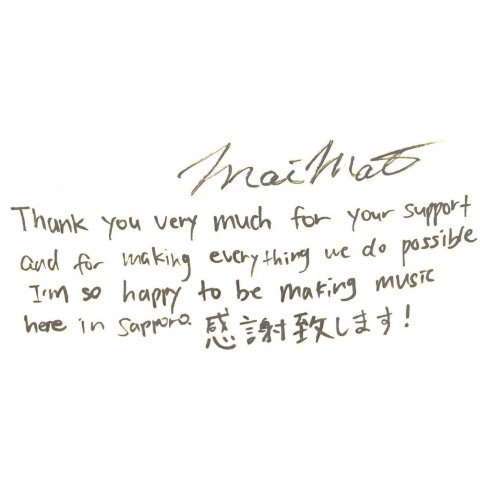 Mai Mat
Thank you very much for your support
and for making everything we do possible
I'm so happy to be making music
here in Sapporo. 感謝致します!